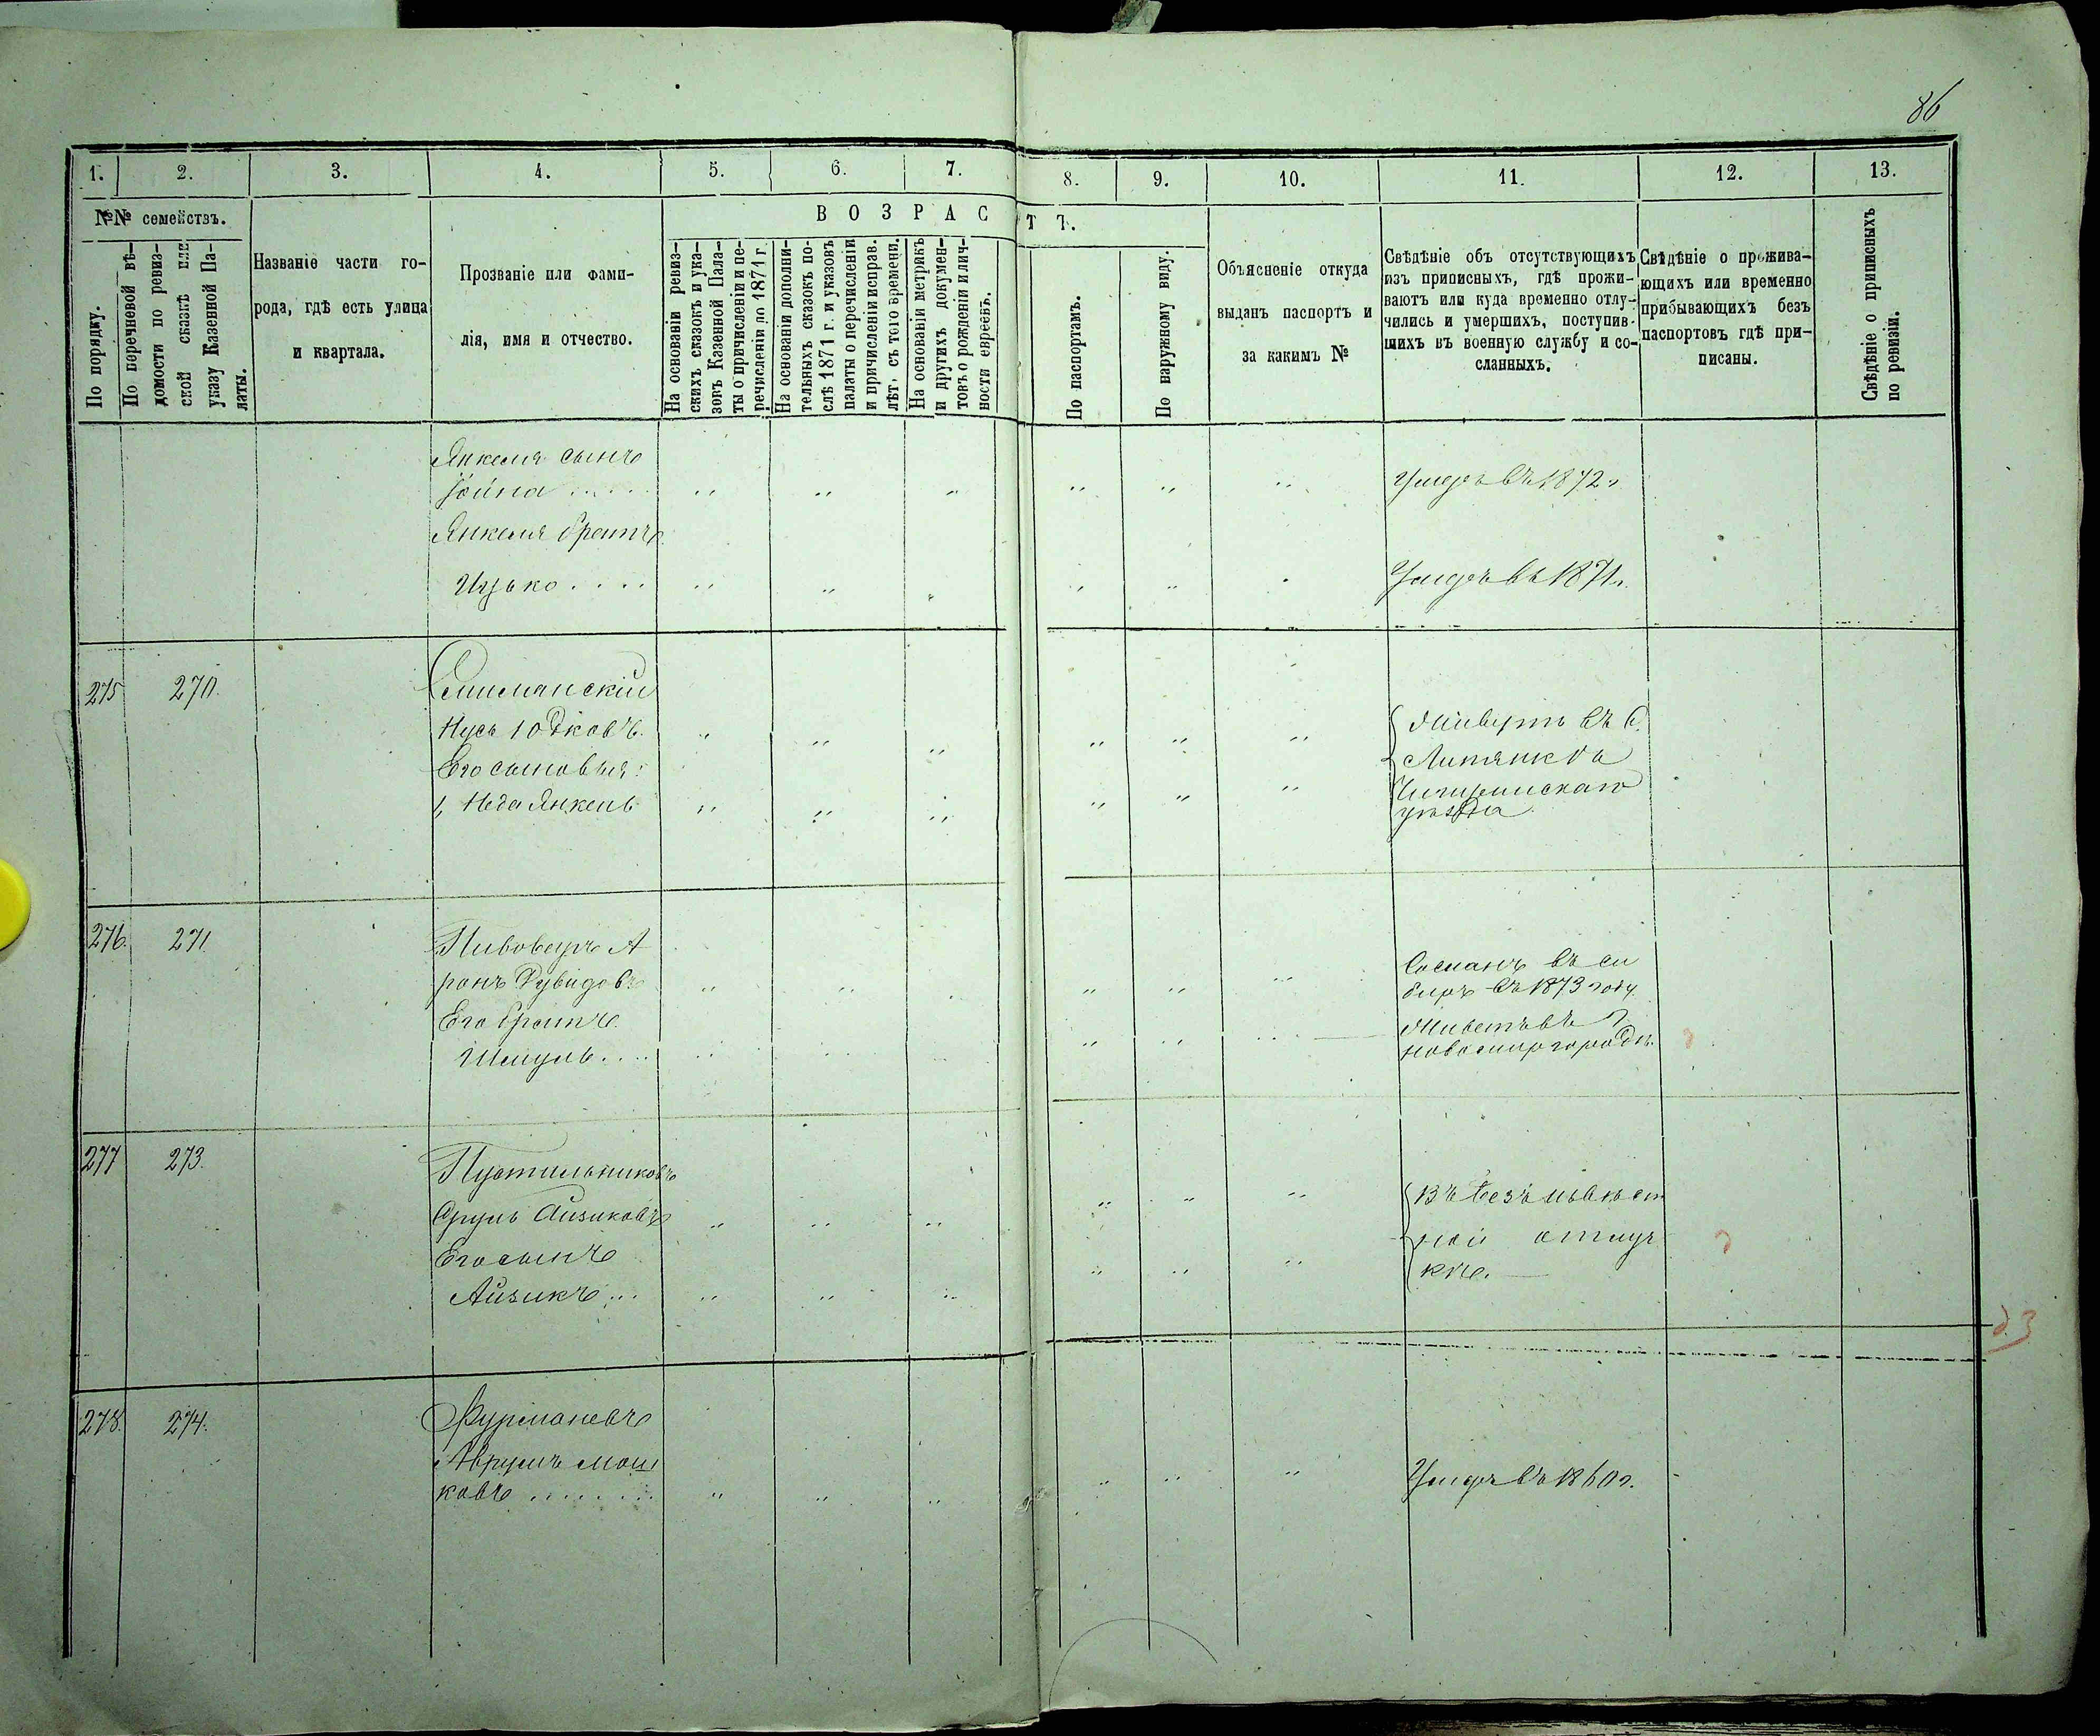 86
1. 2. 3. 4. 5. 6. 7. 8. 9. 10. 11. 12. 13.
№№ семействъ.
В О З Р А С Т Ъ.
По порядку.
По перечневой вѣ-
домости по ревиз-
ской сказкѣ или
указу Казенной Па-
латы.
Названіе части го-
рода, гдѣ есть улица
и квартала.
Прозваніе или фами-
лія, имя и отчество.
На основаніи ревиз-
скихъ сказокъ и ука-
зокъ Казенной Пала-
ты о причисленіи и пе-
речисленіи до 1871 г.
На основаніи дополни-
тельныхъ сказокъ по-
слѣ 1871 г. и указовъ
палаты о перечисленіи
и причисленіи исправ.
лѣт, съ того времени.
На основаніи метрикъ
и другихъ докумен-
товъ о рожденіи и лич-
ности евреевъ.
По паспортамъ.
По наружному виду.
Объясненіе откуда
выданъ паспортъ и
за какимъ №
Свѣдѣніе объ отсутствующихъ
изъ приписныхъ, гдѣ прожи-
ваютъ или куда временно отлу-
чились и умершихъ, поступив-
шихъ въ военную службу и со-
сланныхъ.
Свѣдѣніе о прожива-
ющихъ или временно
прибывающихъ безъ
паспортовъ гдѣ при-
писаны.
Свѣдѣніе о приписныхъ
по ревизіи.
Янкеля сынъ
Іойна ..... Умеръ въ 1872 г.
Янкеля братъ
Ицько .... Умеръ въ 1871 г.
275 270.
Нусь Юдковъ. Живутъ въ С.
Его сыновья:
1, Янкель Чигиринскаго
уѣзда
276. 271 Пивоваръ А
ронъ Рувидовъ Сосланъ въ си
биръ въ 1873 году.
Его братъ Живетъ въ г.
Шмуль.... Новомиргородѣ.
277 273. Пустильниковъ
Сруль Айзиковъ Въ безъизвѣст
Его сынъ ной отлуч
Айзикъ ... кѣ.
278. 274. Фурмановъ
Аврумъ Мош
ковъ ....... Умеръ въ 1860 г.